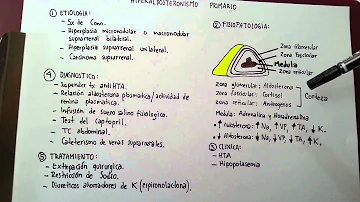 HIPERALDOSTERONISMO PRIMARIO
① ETIOLOGIA:
- Sx de Conn.
- Hiperplasia micronodular o macronodular
suprarrenal bilateral.
- Hiperplasia suprarrenal unilateral.
- Carcinoma suprarrenal.
② FISIOPATOLOGIA:
Zona glomerular
Zona fascicular
Medula
Zona reticular
Zona glomerular: Aldosterona
Zona fascicular: Cortisol
Zona reticular: Andrógenos
Corteza
Medula: Adrenalina y Noradrenalina
• ↑ Aldosterona: ↑ Na, ↑ VP, ↑ TA, ↓ K.
• ↓ Aldosterona: ↓ Na, ↓ VP, ↓ TA, ↑ K.
③ CLINICA:
- HTA
- Hipopotasemia
④ DIAGNOSTICO:
- Suspender tx anti HTA.
- Relación aldosterona plasmatica/actividad de
renina plasmatica.
- Infusión de suero salino fisiologico.
- Test del Captopril.
- TC abdominal.
- Cateterismo de venas suprarrenales.
⑤ TRATAMIENTO:
- Extirpación quirurgica.
- Restricción de Sodio.
- Diureticos ahorradores de K (espironolactona).